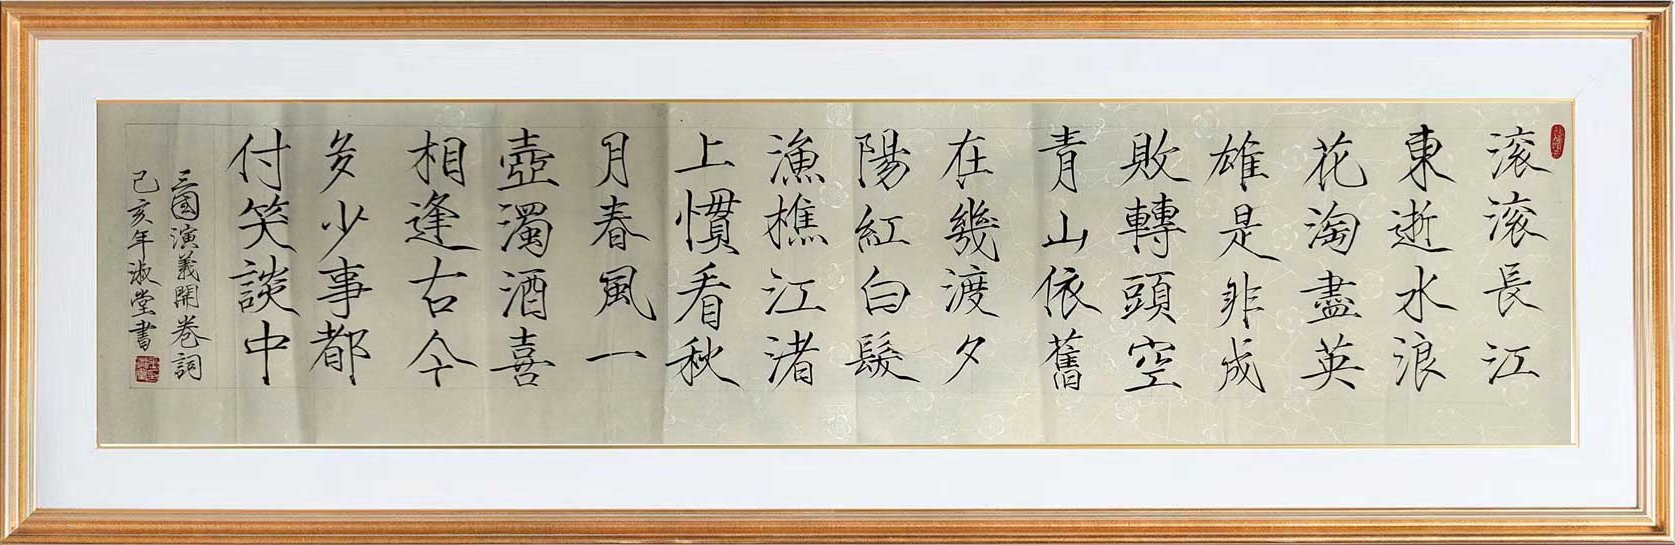 滚滚長江
東逝水浪
花淘盡英
雄是非成
敗轉頭空
青山依舊
在幾渡夕
陽紅白髮
漁樵江渚
上慣看秋
月春風一
壺濁酒喜
相逢古今
多少事都
付笑談中
三國演義開卷詞
己亥年淑堂書